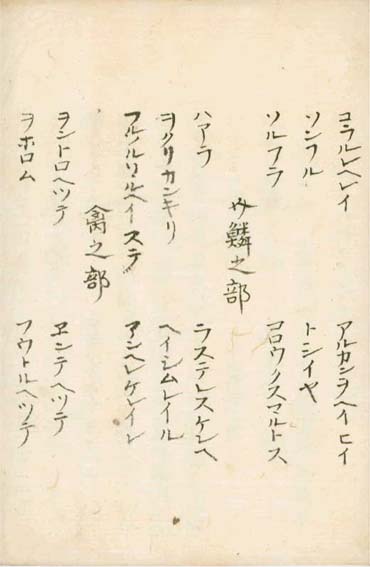 コラルレヘレイ　アルカンヲヘイヒイ
ソンフル　トシイヤ
ソルフラ　コロウクスマルトス
介鱗之部
ハアラ　ラステレスケレヘ
ヲクリカンキリ　ヘイシムレイル
アンヘレケレイレ
禽之部
ヲシトロヘツテ　ヱンテヘツテ
ヲホロム　フウトルヘツテ